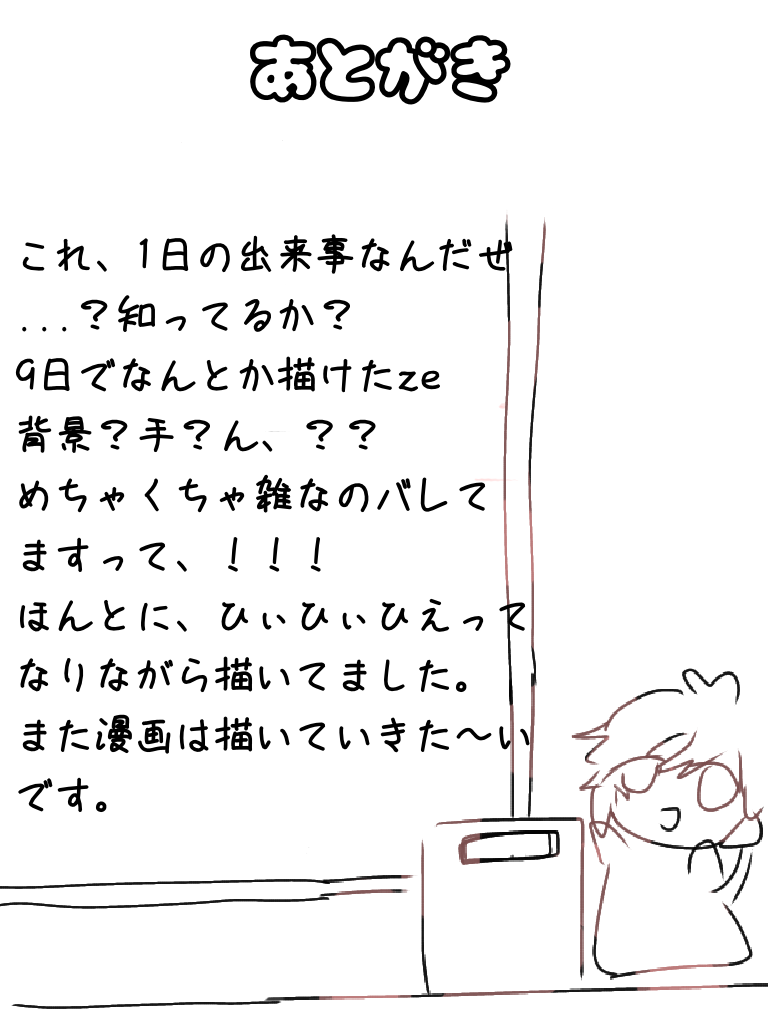 あとがき
これ、1日の出来事なんだぜ
...？知ってるか？
9日でなんとか描けたze
背景？手？ん、？？
めちゃくちゃ雑なのバレて
ますって、！！！
ほんとに、ひぃひぃひえって
なりながら描いてました。
また漫画は描いていきた〜い
です。